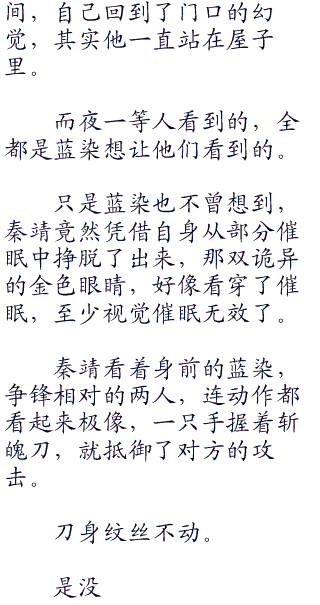 间，自己回到了门口的幻
觉，其实他一直站在屋子
里。
而夜一等人看到的，全
都是蓝染想让他们看到的。
只是蓝染也不曾想到，
秦靖竟然凭借自身从部分催
眠中挣脱了出来，那双诡异
的金色眼睛，好像看穿了催
眠，至少视觉催眠无效了。
秦靖看着身前的蓝染，
争锋相对的两人，连动作都
看起来极像，一只手握着斩
魄刀，就抵御了对方的攻
击。
刀身纹丝不动。
是没